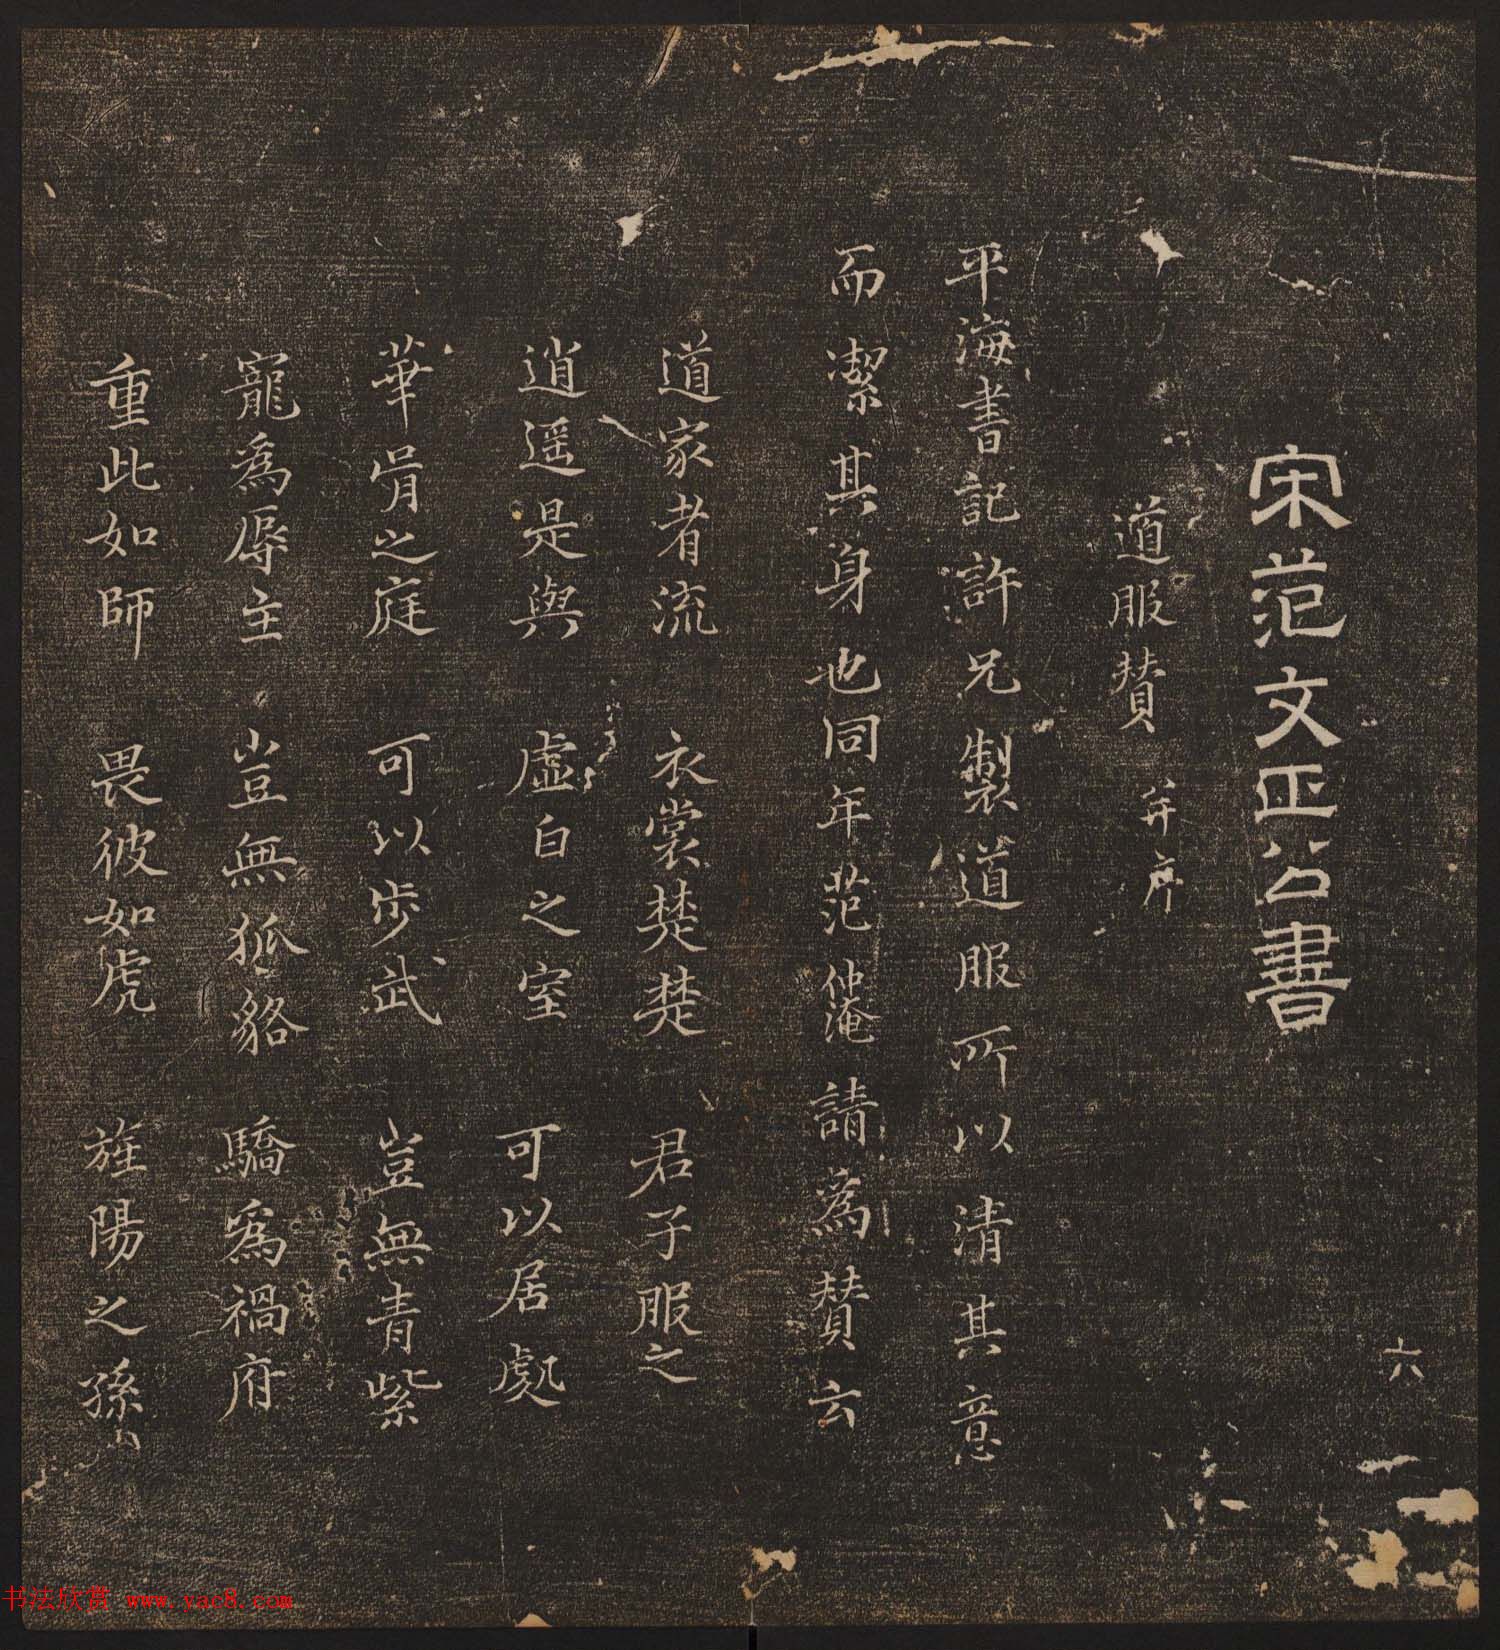 宋范文正公書
六
道服贊 并序
平海書記許兄製道服所以清其意
而潔其身也同年范仲淹請為贊云
道家者流 衣裳楚楚 君子服之
逍遥是與 虛白之室 可以居處
華胥之庭 可以步武 豈無青紫
寵為辱主 豈無狐貉 驕為禍府
重此如師 畏彼如虎 旌陽之孫
书法欣赏 www.yac8.com